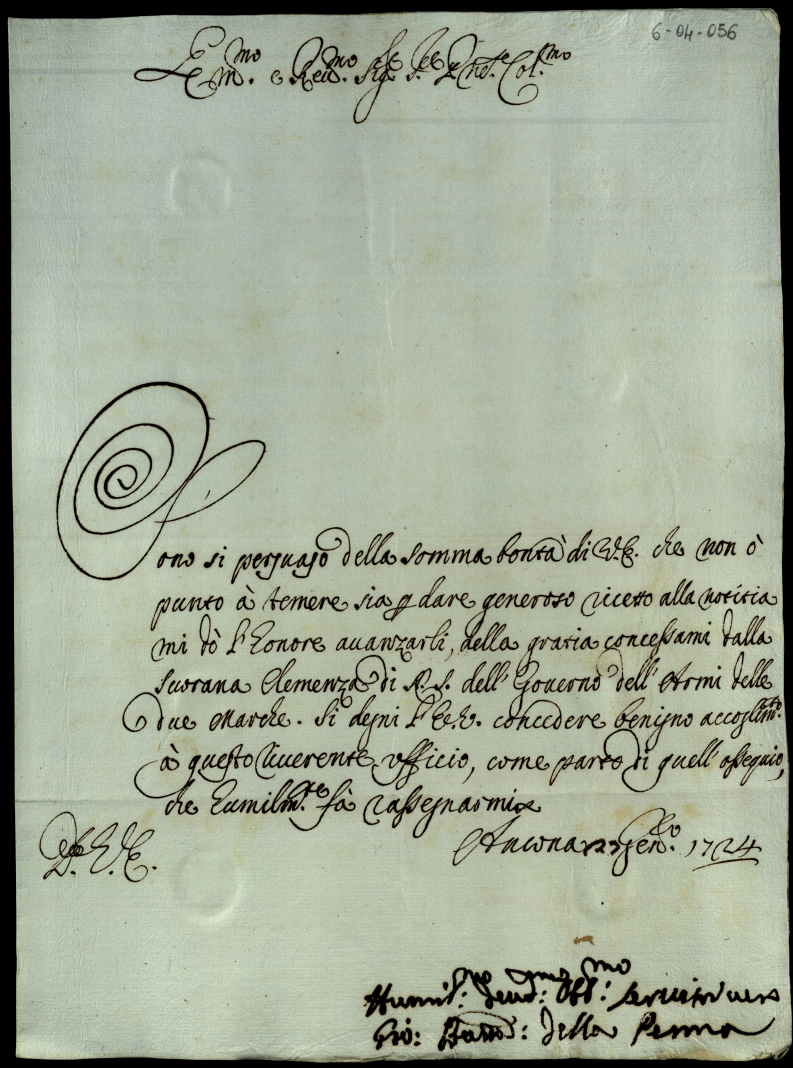 6-04-056
Em.mo e Reu.mo Sig.re P.ne Col.mo
Sono si persuaso della somma bontà di V.E. che non ò
punto à temere sia p dare generoso ricetto alla notitia
mi dò l'honore auanzarli, della gratia concessami dalla
sourana Clemenza di N.S. dell'Gouerno dell'Armi delle
due Marche. Si degni l'E.V. concedere benigno accoglim.to
à questo riuerente vfficio, come parto di quell'ossequio,
che humilm.te fà rassegnarmi
D. V. E.
Ancona 23 Gen.o 1724
Humil.mo Deu.mo Obb.mo seruitor uero
Gio: Batta: della Penna